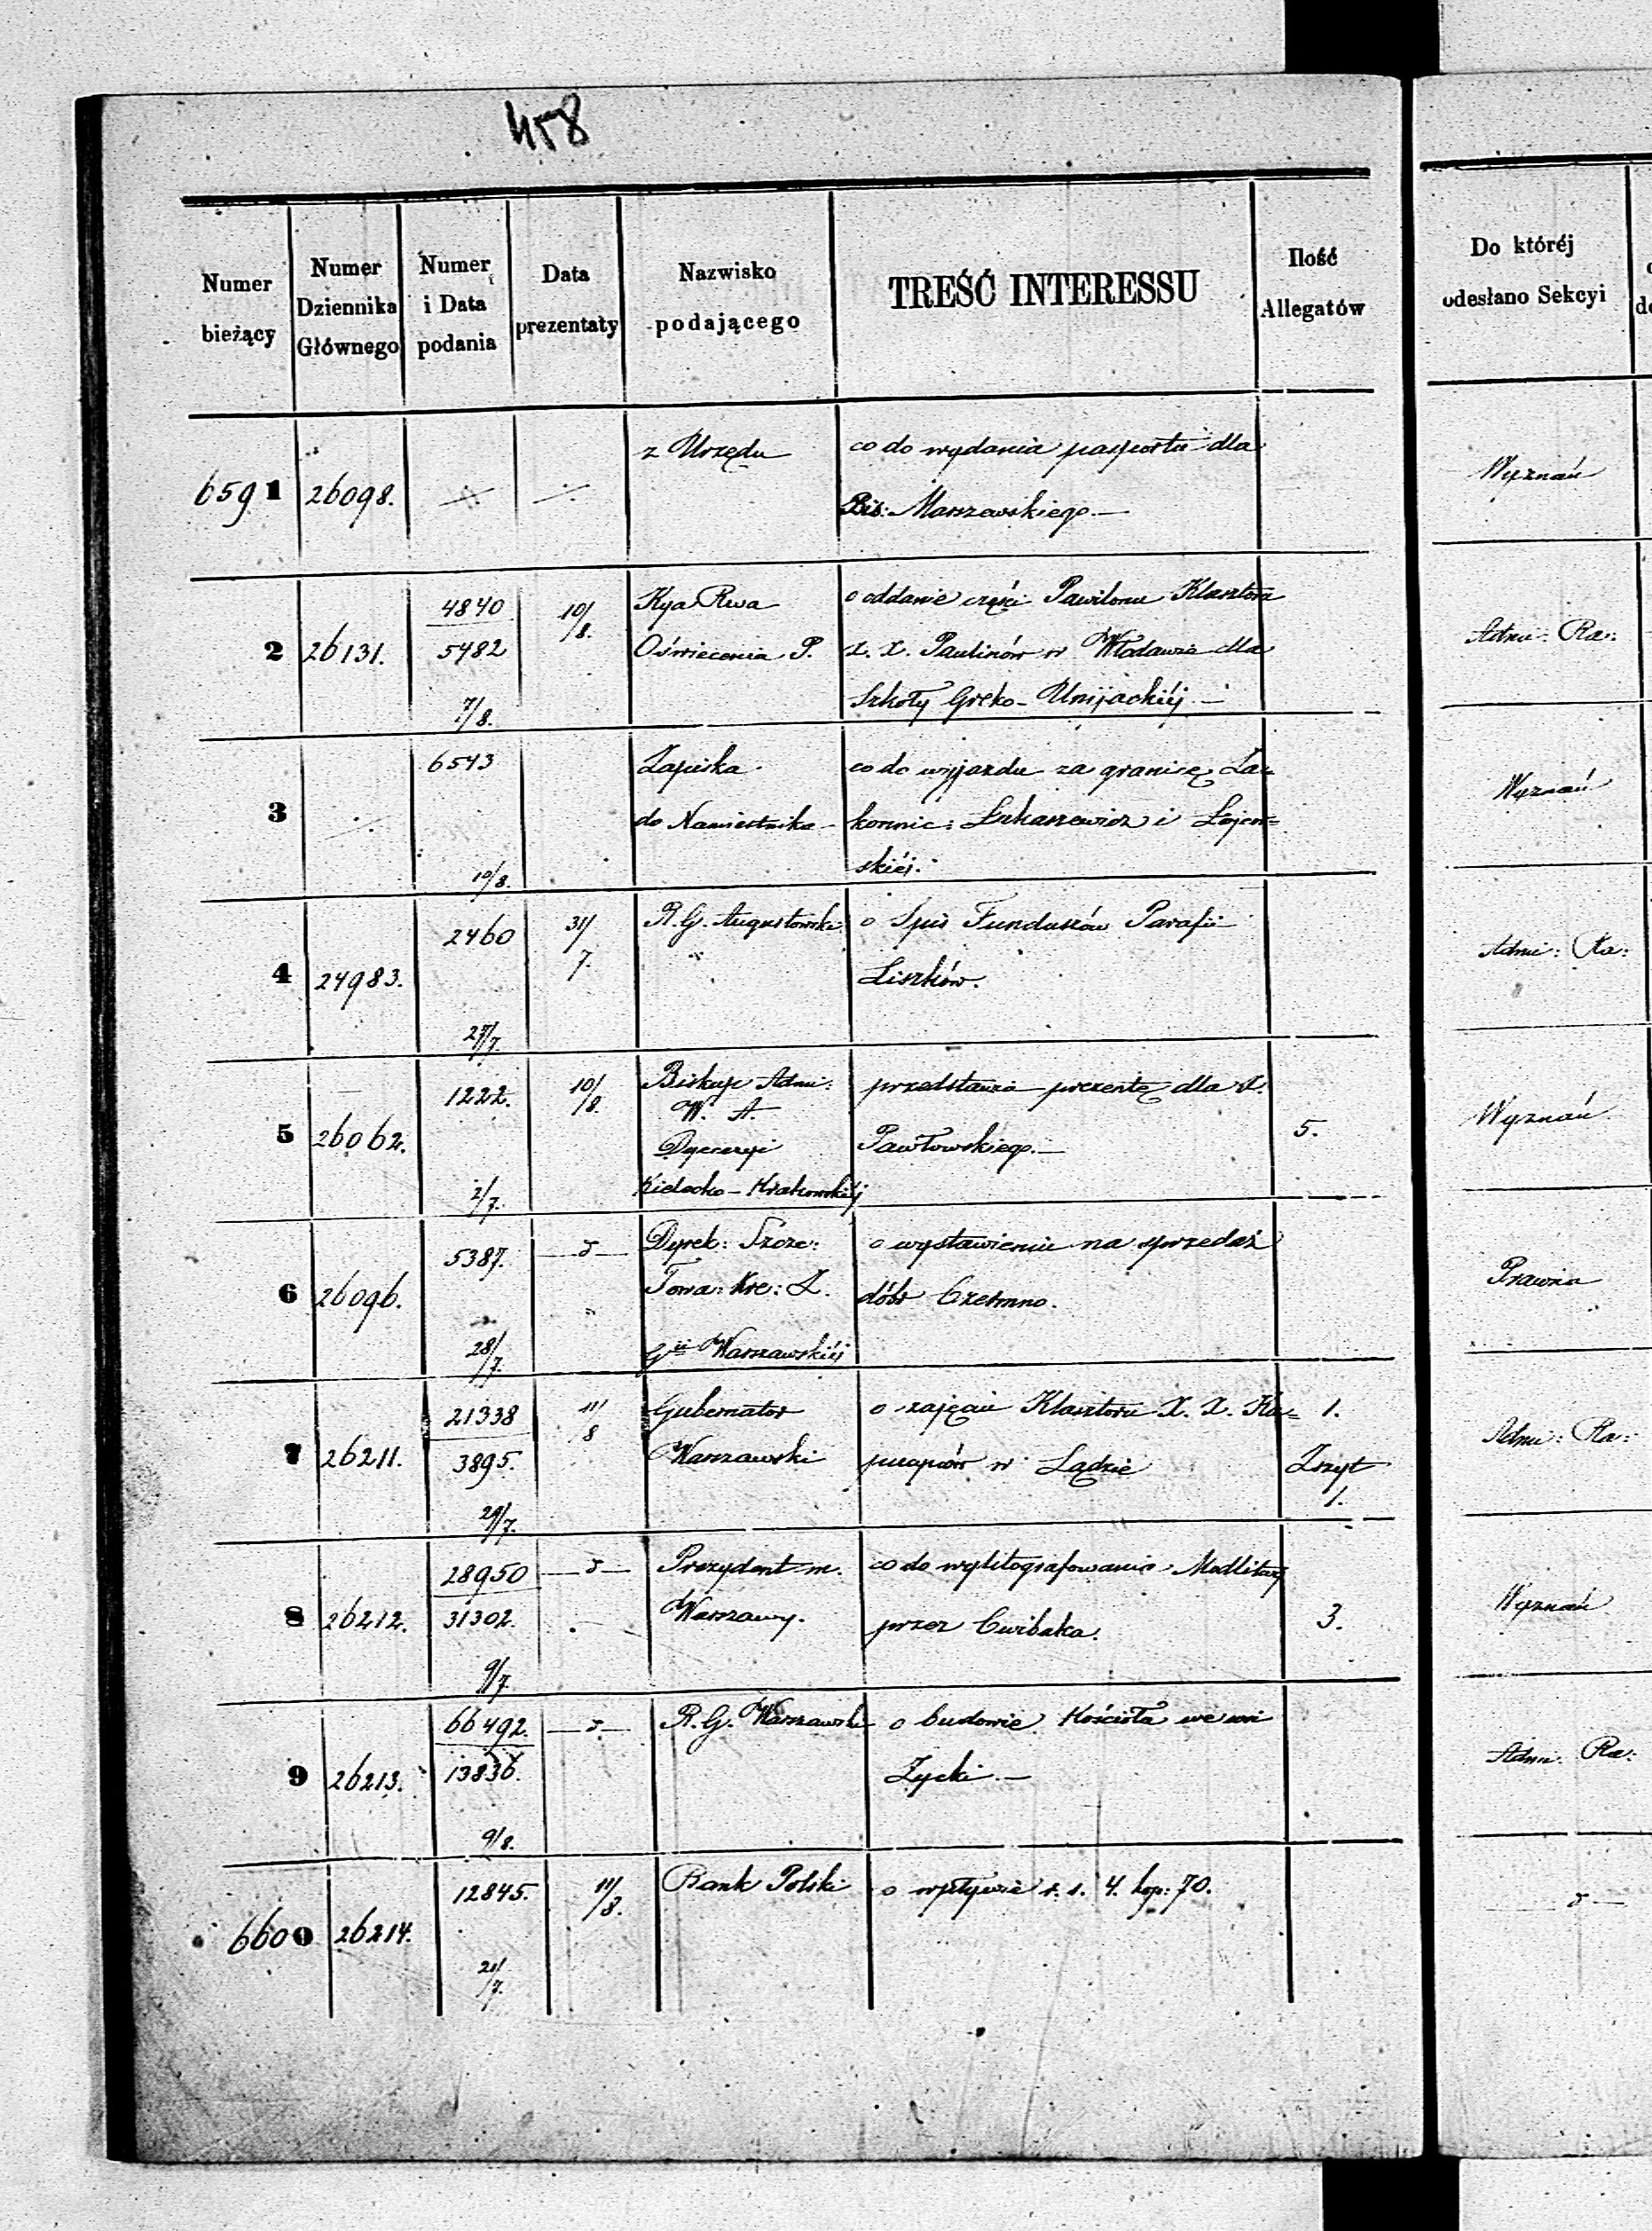 458
Numer bieżący
Numer Dziennika Głównego
Numer i Data podania
Data prezentaty
Nazwisko podającego
TREŚĆ INTERESSU
Ilość Allegatów
Do któréj odesłano Sekcyi
6591 26098. z Urzędu co do wydania paszportu dla Wyznań
Bis: Marszewskiego.—
2 26131. 4840 10/8. Kya Rwa o oddanie części Pawilonu Klasztoru Adm: Ra:
5482 Oświecenia P. X. X. Paulinów w Włodawie dla
7/8. Szkoły Greko-Unijackiéj.—
3 6543 Zapiska co do wyjazdu za granicę Za=
do Namiestnika konnic: Łukaszewicz i
10/8. skiéj.
4 24983. 2460 31/7. R. G. Augustowski o Spis Funduszów Parafii Admi: Ra:
27/7. Liszków.
5 26062. 1222. 10/8. Biskup Admi: przedstawia prezentę dla X. 5. Wyznań
W. A. Pawłowskiego.—
Dyecezyi
2/7. Kielecko-Krakowskiéj
6 26096. 5387. —d— Dyrek: Szcze: o wystawieniu na sprzedaż Prawna
Towa: Kre: Z. dóbr Czermno.
28/7. Gii Warszawskiéj
7 26211. 21338 11/8 Gubernator o zajęciu Klasztoru X. X. Ka= 1. Adm: Ra:
3895. Warszawski pucynów w Lądzie Zszyt
29/7. 1.
8 26212. 28950 —d— Prezydent m. co do wylitografowania Modlitwy Wyznań
31302. Warszawy. przez Cwibaka. 3.
9/7.
9 26213. 66492. —d— R. G. Warszawski o budowie Kościoła we wsi Adm. Ra:
13836. Zycki.—
9/8.
6600 26214. 12845. 11/8. Bank Polski o wpływie r. s. 4. kop: 70. d—
21/7.